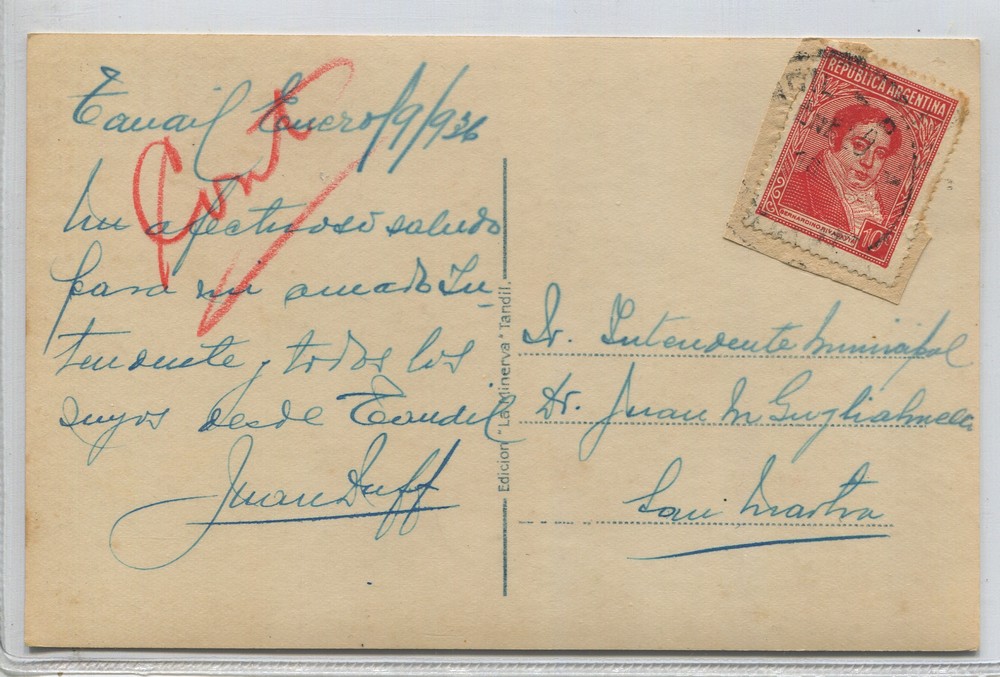 Tandil Enero/9/936
Cont
Un afectuoso saludo
para mi amado In-
tendente y todos los
suyos desde Tandil
Juan Duff
Edicion "La Minerva" Tandil.
REPUBLICA ARGENTINA
BERNARDINO RIVADAVIA
10c
Sr. Intendente Municipal
Dr. Juan M Guglialmelli
San Martin